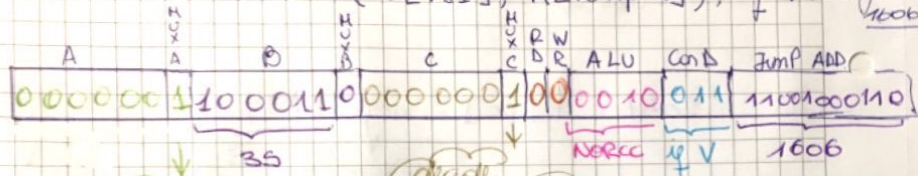 1606
A MUXA B MUXB C MUXC RD WR ALU COND JUMP ADD
000000 1 100011 0 000000 1 0 0 0010 011 11001000110
35 NORCC if V 1606